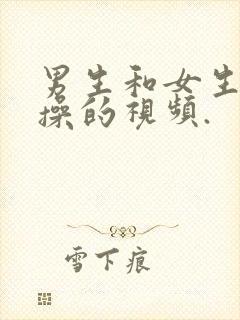 男生和女生
操的視頻.
雪下痕